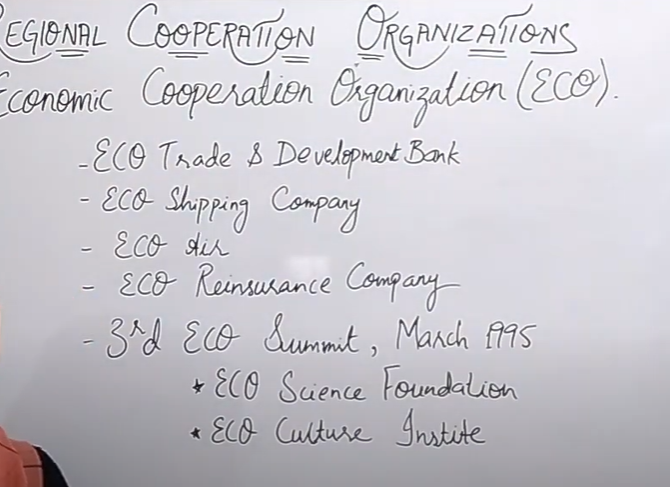 REGIONAL COOPERATION ORGANIZATIONS
Economic Cooperation Organization (ECO).
- ECO Trade & Development Bank
- ECO Shipping Company
- ECO Air
- ECO Reinsurance Company
- 3rd ECO Summit, March 1995
* ECO Science Foundation
* ECO Culture Instite